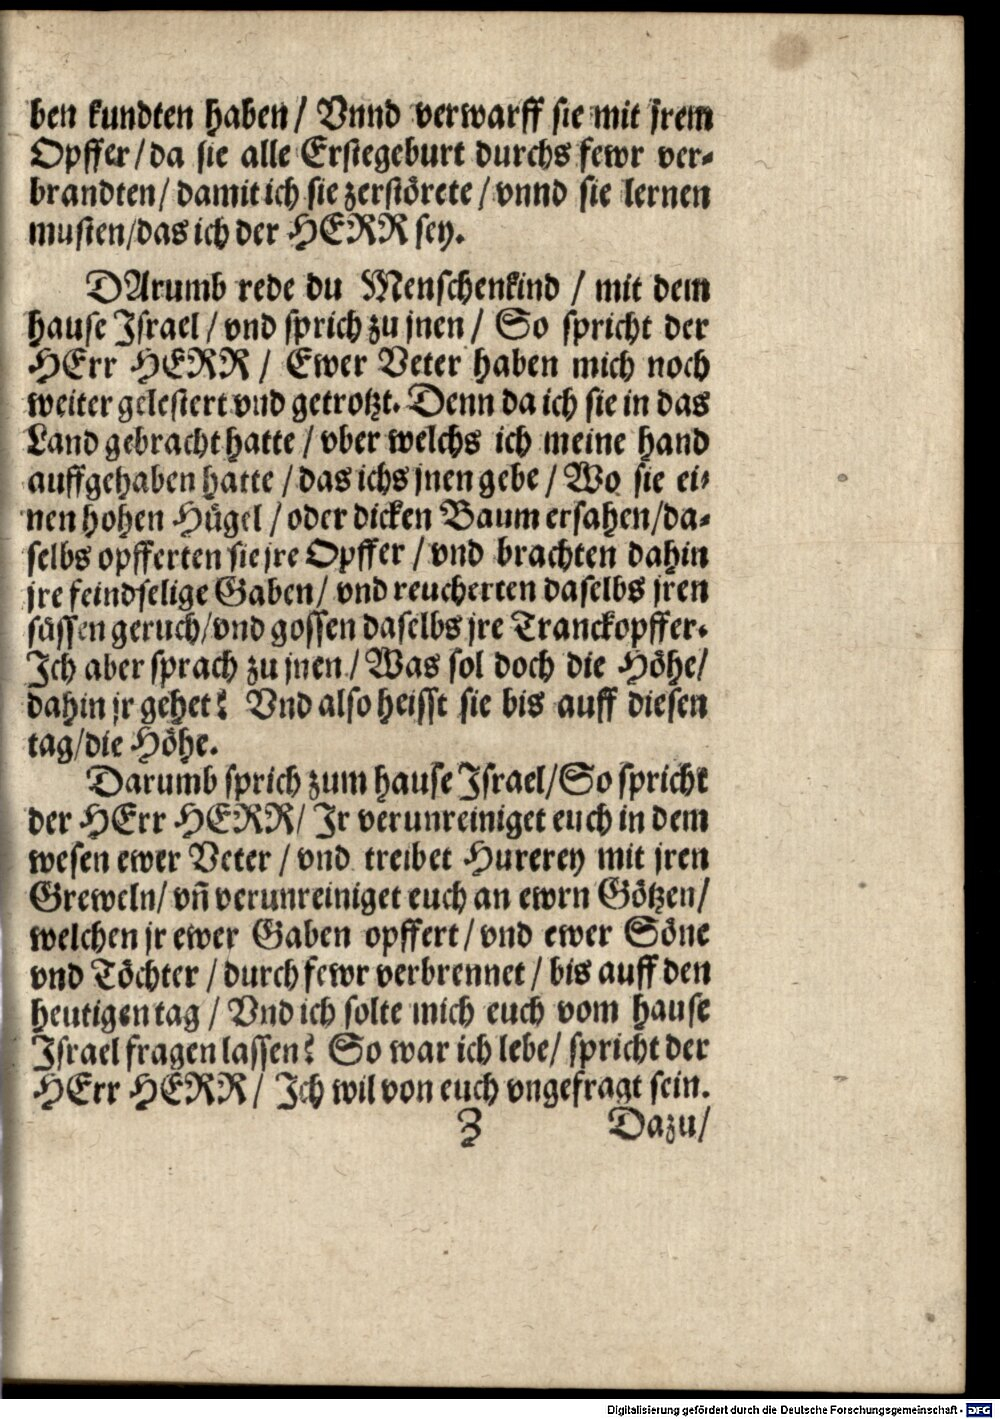 ben kundten haben / Vnnd verwarff sie mit jrem
Opffer / da sie alle Erstegeburt durchs fewr ver-
brandten / damit ich sie zerstörete / vnnd sie lernen
musten / das ich der HERR sey.
DArumb rede du Menschenkind / mit dem
hause Jsrael / vnd sprich zu jnen / So spricht der
HErr HERR / Ewer Veter haben mich noch
weiter gelestert vnd getrotzt. Denn da ich sie in das
Land gebracht hatte / vber welchs ich meine hand
auffgehaben hatte / das ichs jnen gebe / Wo sie ei-
nen hohen Hügel / oder dicken Baum ersahen / da-
selbs opfferten sie jre Opffer / vnd brachten dahin
jre feindselige Gaben / vnd reucherten daselbs jren
süssen geruch / vnd gossen daselbs jre Tranckopffer.
Jch aber sprach zu jnen / Was sol doch die Höhe /
dahin jr gehet? Vnd also heisst sie bis auff diesen
tag / die Höhe.
Darumb sprich zum hause Jsrael / So spricht
der HErr HERR / Jr verunreiniget euch in dem
wesen ewer Veter / vnd treibet Hurerey mit jren
Greweln / vñ verunreiniget euch an ewrn Götzen /
welchen jr ewer Gaben opffert / vnd ewer Söne
vnd Töchter / durch fewr verbrennet / bis auff den
heutigen tag / Vnd ich solte mich euch vom hause
Jsrael fragen lassen? So war ich lebe / spricht der
HErr HERR / Jch wil von euch vngefragt sein.
Z Dazu /
Digitalisierung gefördert durch die Deutsche Forschungsgemeinschaft - DFG